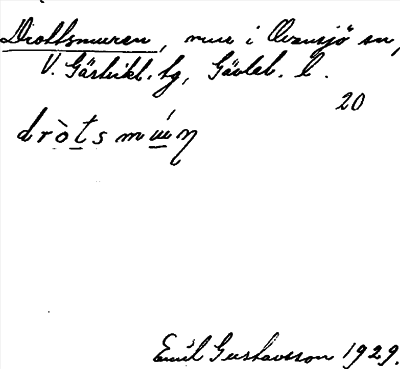 Drottsmuren, mur i Ovansjö sn,
V. Gästrikl. tg, Gävleb. l.
20
dròtsmúɯ̲n
Emil Gustavsson 1929.